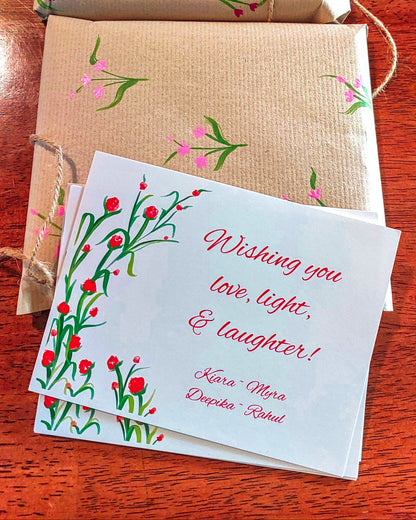 Wishing you
love, light,
& laughter!
Kiara ~ Myra
Deepika ~ Rahul